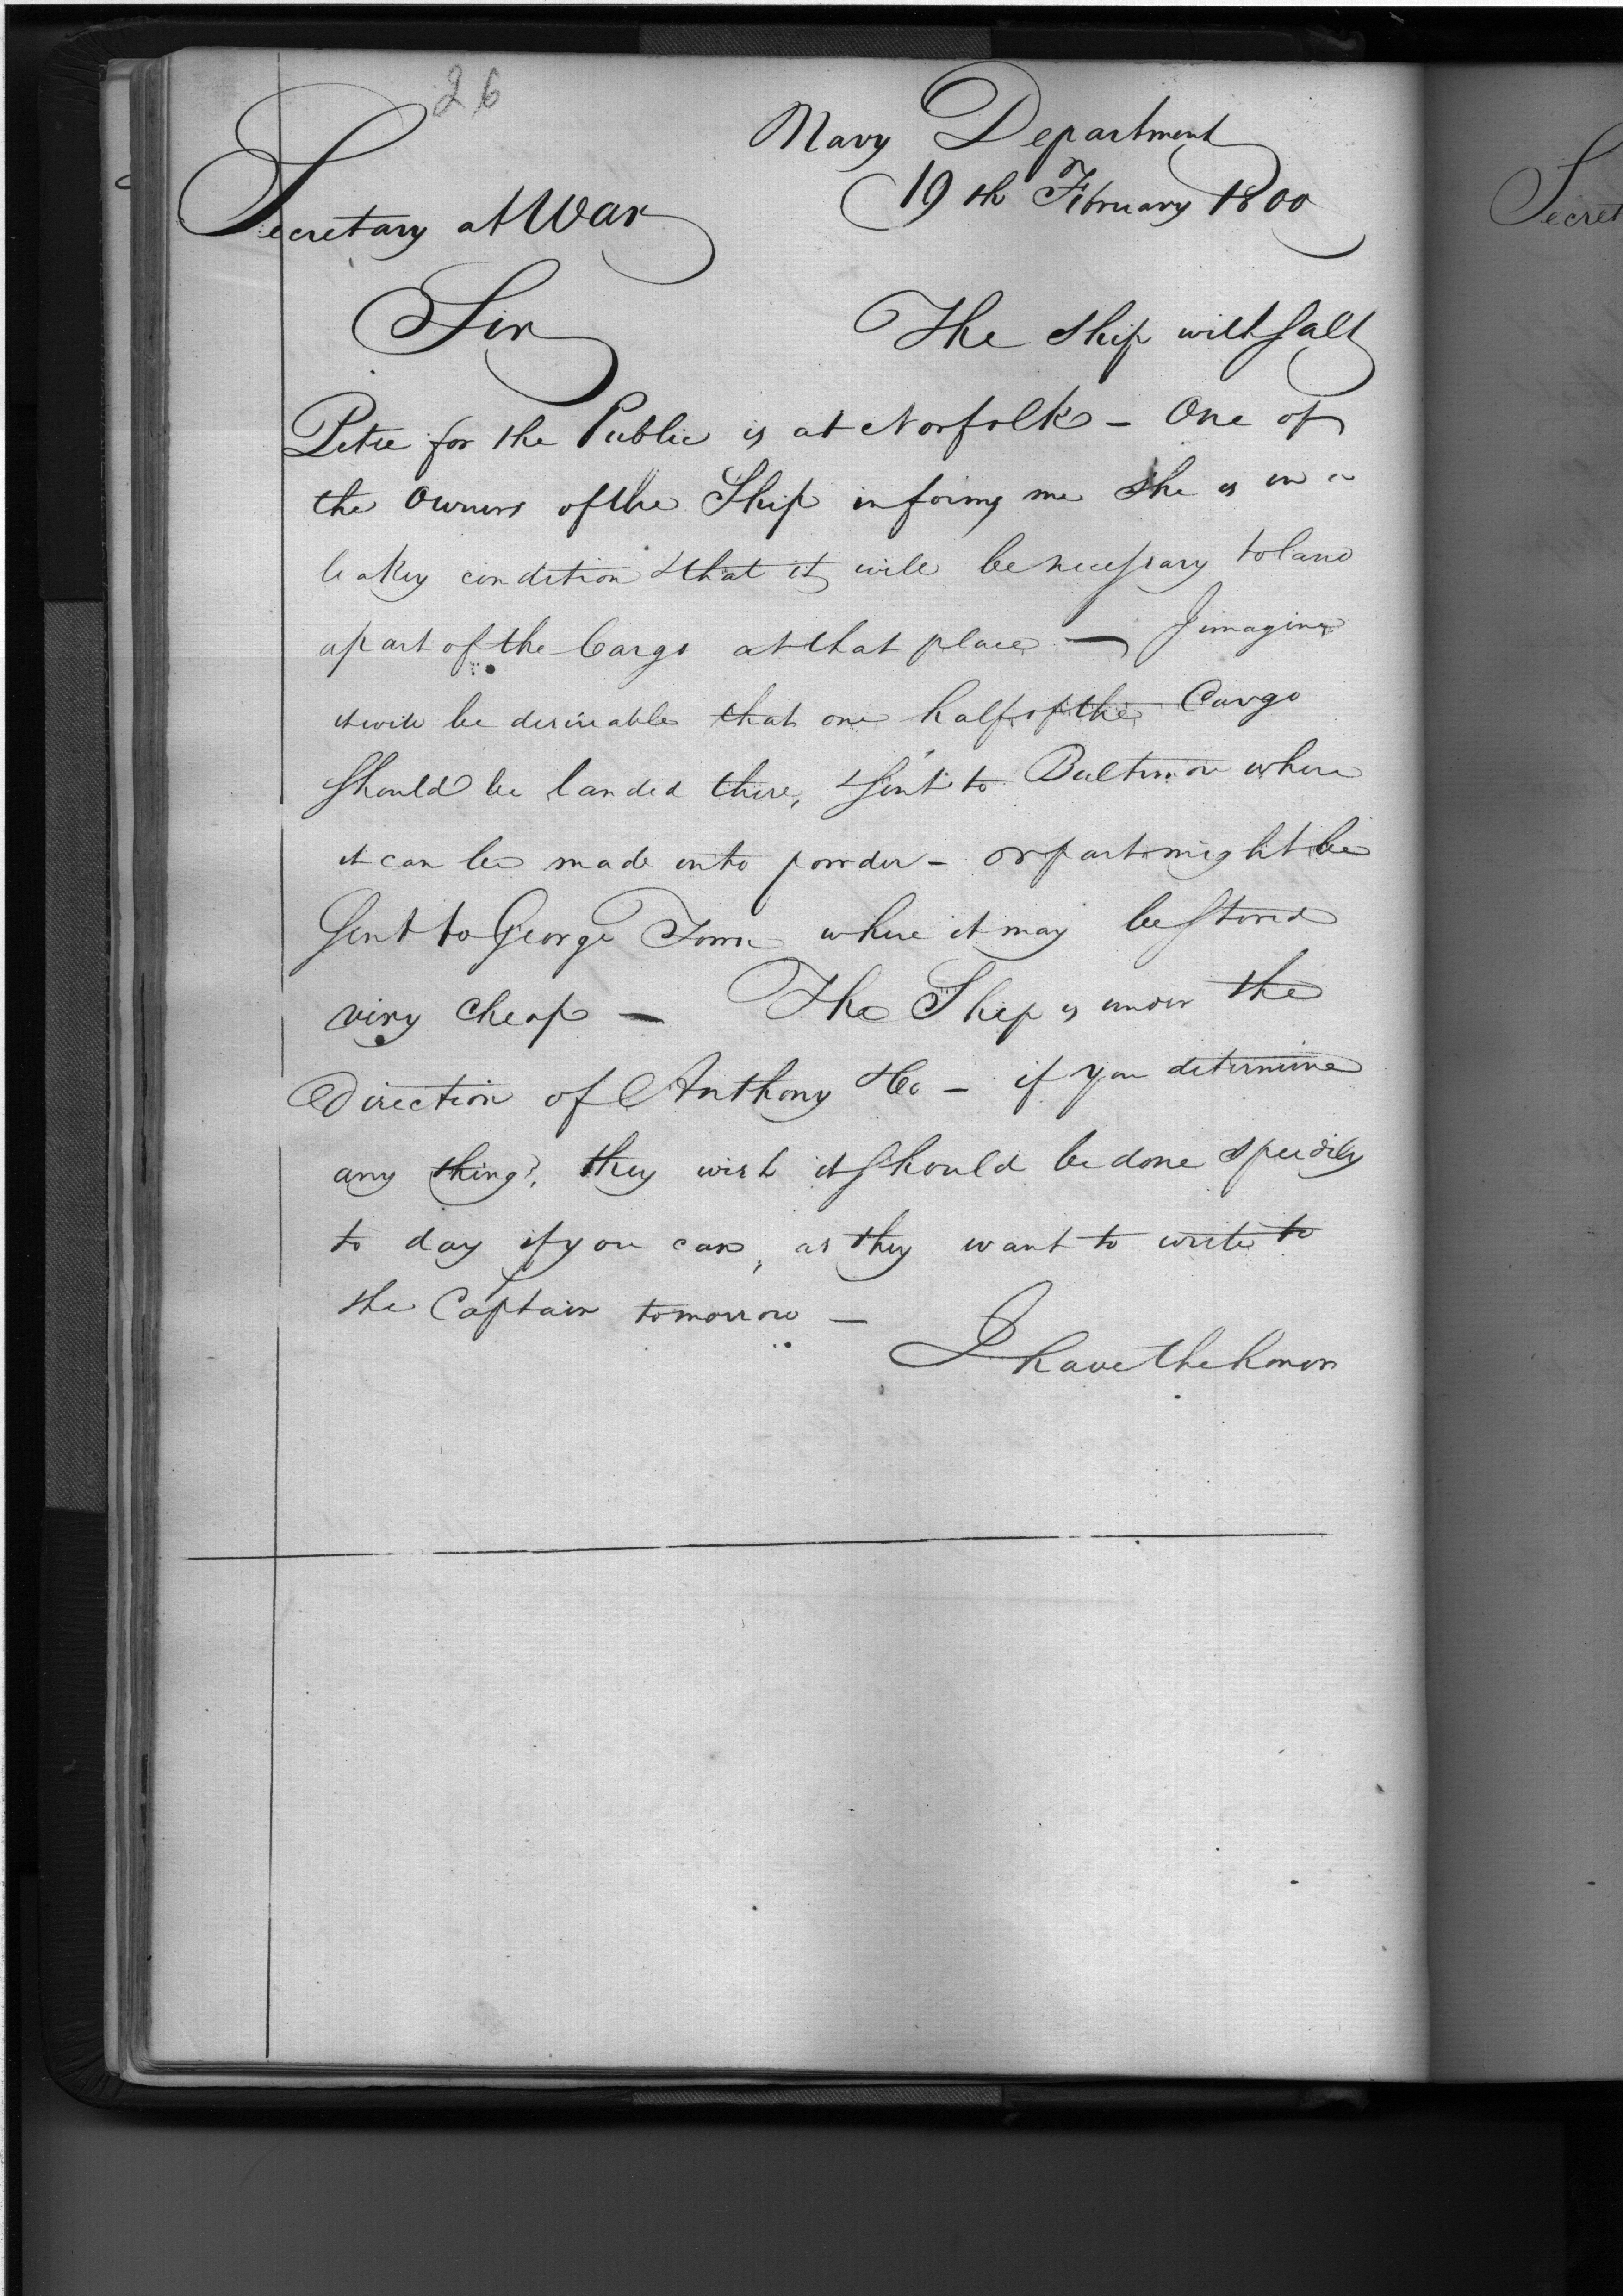 26
Navy Department
19th February 1800
Secretary at War
Sir
The Ship with Salt
Petre for the Public is at Norfolk - One of
the Owners of the Ship informs me She is in a
leakey condition & that it will be necessary to land
a part of the Cargo at that place — I imagine
it will be desireable that one half of the Cargo
should be landed there, & sent to Baltimore where
it can be made into powder - or part might be
sent to George Town where it may be stored
very cheap — The Ship is under the
direction of Anthony & Co - if you determine
any thing, they wish it should be done speedily
to day if you can, as they want to write to
the Captain tomorrow —
I have the honor
Secret